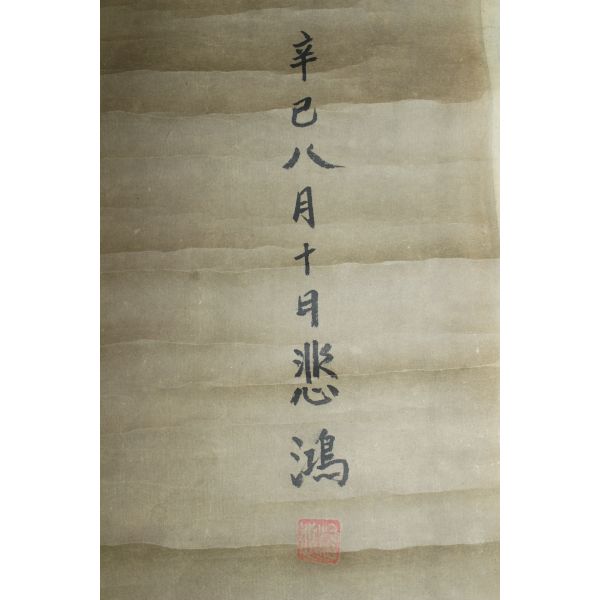 辛巳八月十日悲鴻